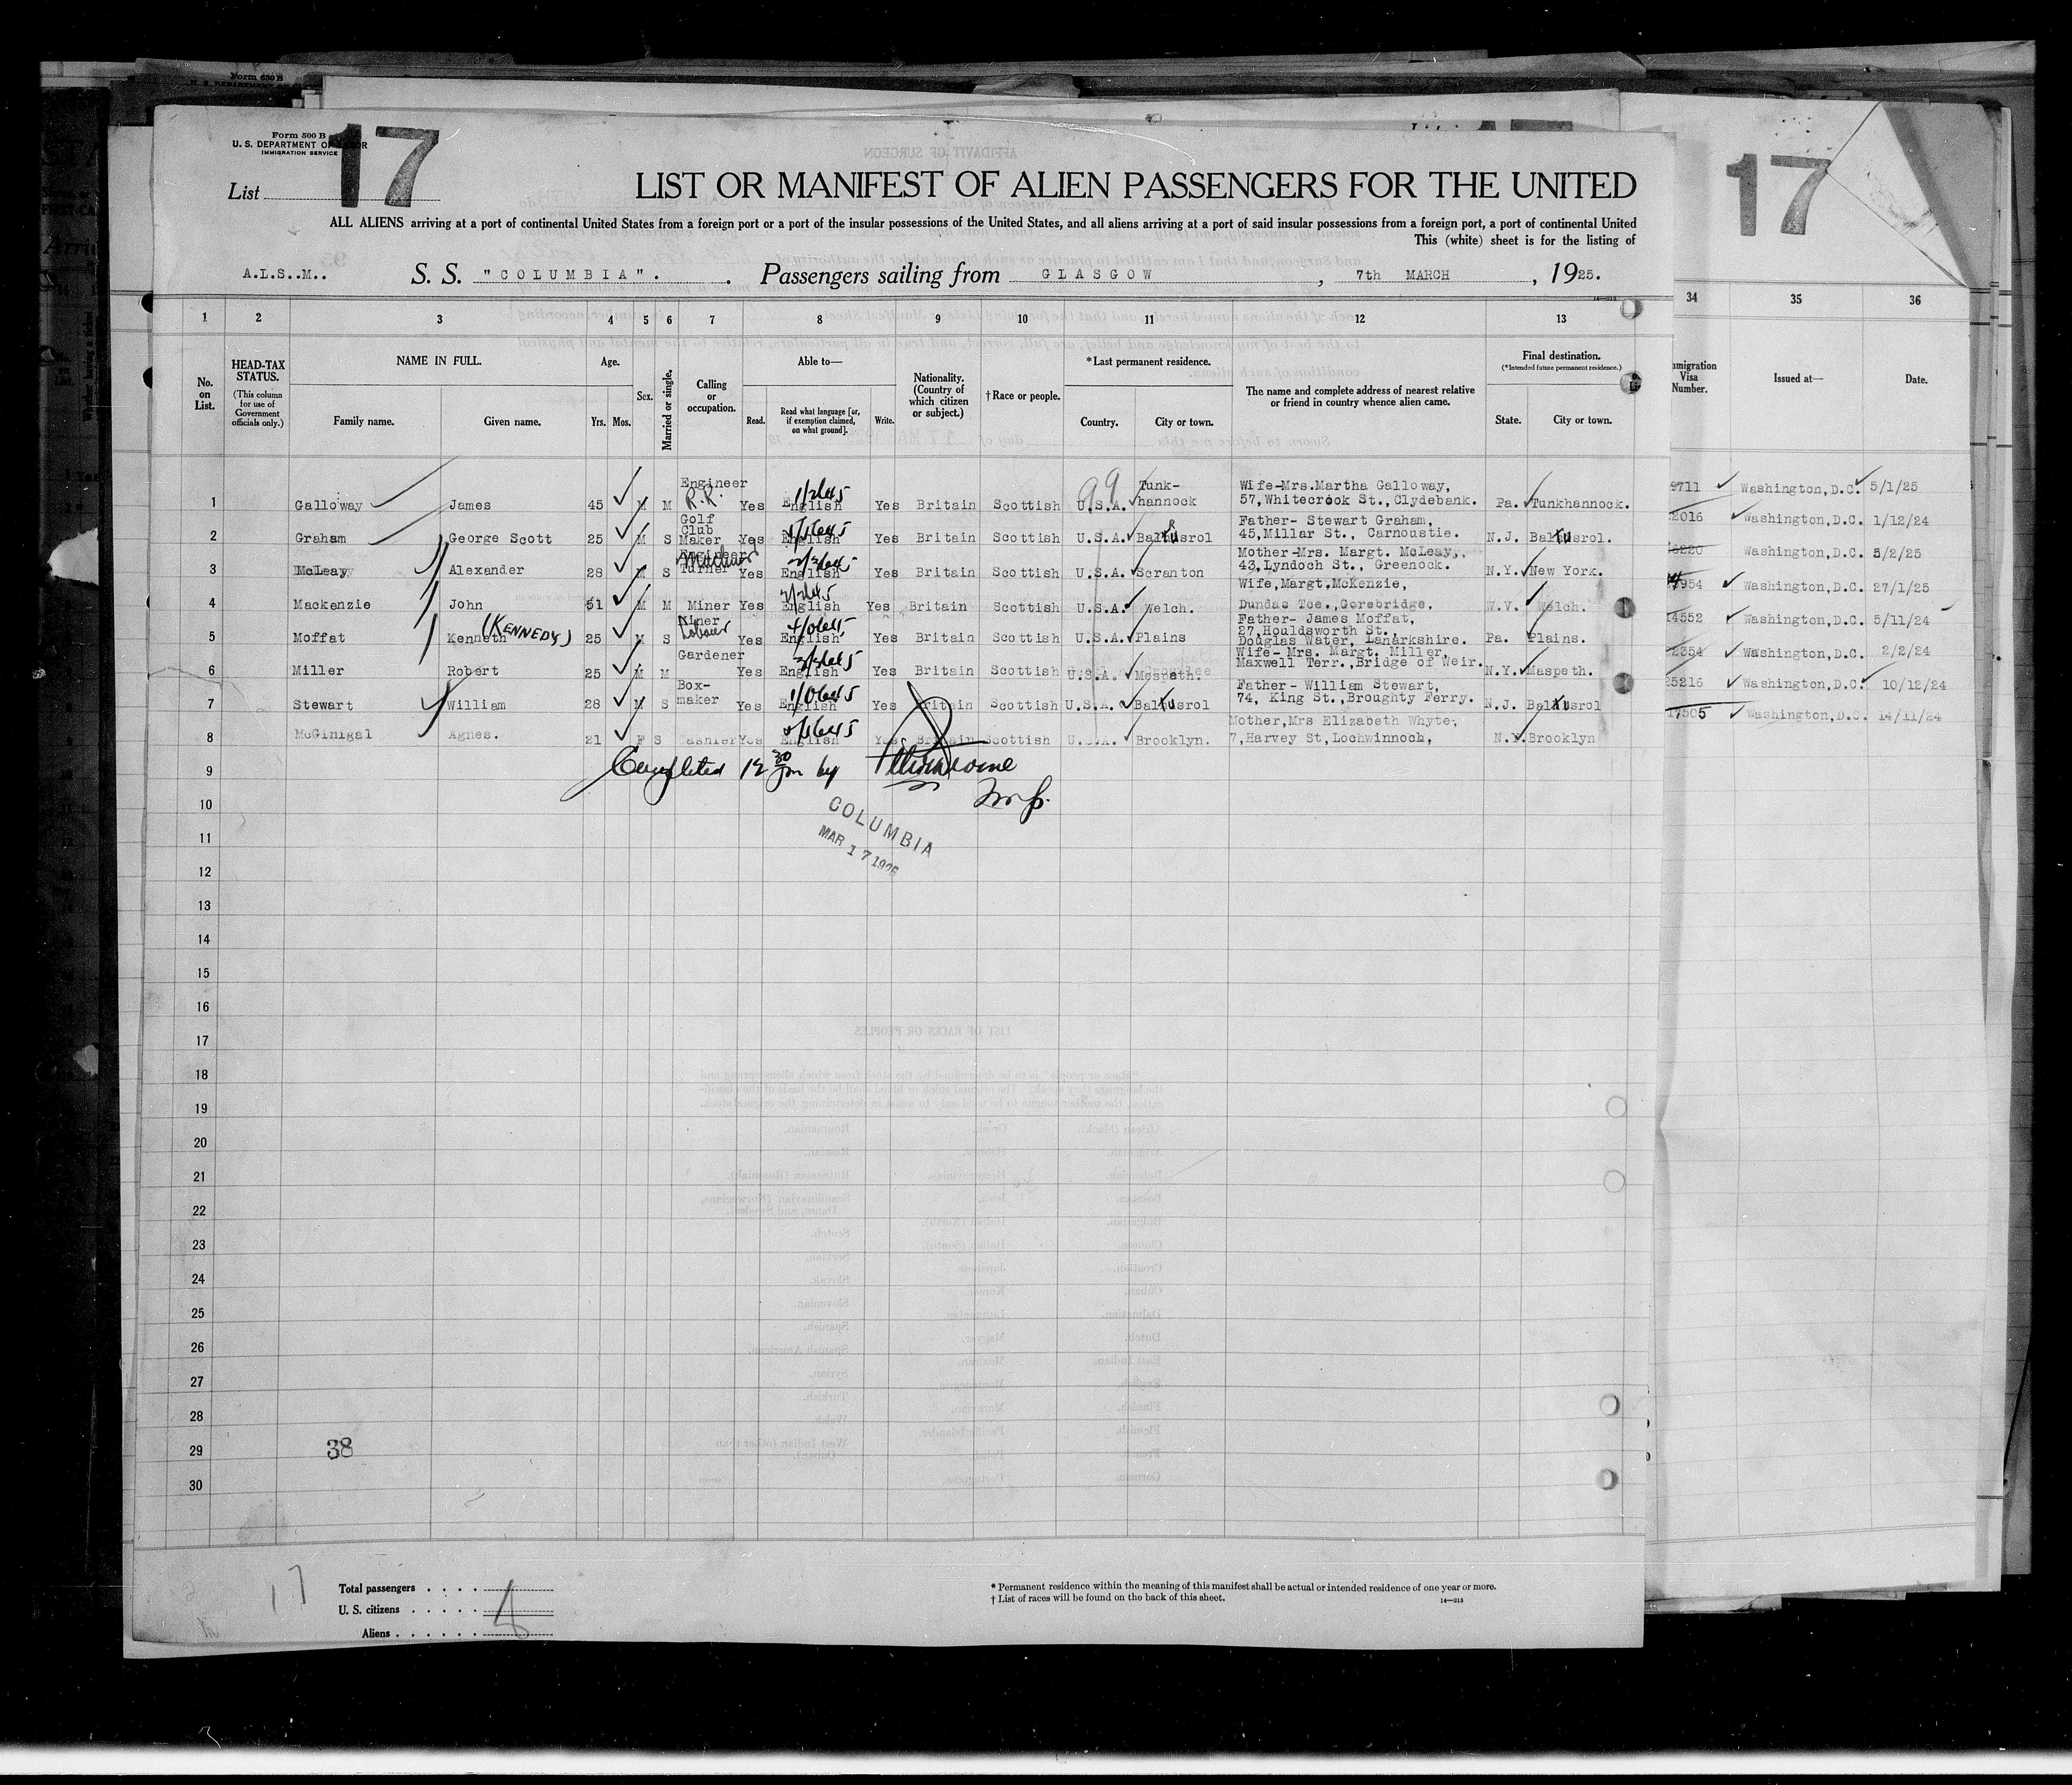 Form 500 B
U. S. DEPARTMENT OF LABOR
IMMIGRATION SERVICE
17
List
LIST OR MANIFEST OF ALIEN PASSENGERS FOR THE UNITED
ALL ALIENS arriving at a port of continental United States from a foreign port or a port of the insular possessions of the United States, and all aliens arriving at a port of said insular possessions from a foreign port, a port of continental United
This (white) sheet is for the listing of
A.L.S..M.. S. S. "COLUMBIA". Passengers sailing from GLASGOW, 7th MARCH, 1925.
17
1 2 3 4 5 6 7 8 9 10 11 12 13 34 35 36
No. on List.
HEAD-TAX STATUS.
(This column for use of Government officials only.)
NAME IN FULL.
Family name. Given name.
Age.
Yrs. Mos.
Sex.
Married or single.
Calling or occupation.
Able to—
Read. Read what language [or, if exemption claimed, on what ground]. Write.
Nationality. (Country of which citizen or subject.)
† Race or people.
* Last permanent residence.
Country. City or town.
The name and complete address of nearest relative or friend in country whence alien came.
Final destination.
(*Intended future permanent residence.)
State. City or town.
Visa Number.
Issued at—
Date.
99
1 Galloway James 45 M M Engineer R.R. Yes English Yes Britain Scottish U.S.A. Tunk-hannock Wife-Mrs.Martha Galloway, 57,Whitecrook St., Clydebank. Pa. Tunkhannock. 9711 Washington,D.C. 5/1/25
2 Graham George Scott 25 M S Golf Club Maker Yes English Yes Britain Scottish U.S.A. Baltusrol Father- Stewart Graham, 45,Millar St., Carnoustie. N.J. Baltusrol. 2016 Washington,D.C. 1/12/24
3 McLeay Alexander 28 M S Engineer Turner Yes English Yes Britain Scottish U.S.A. Scranton Mother-Mrs. Margt. McLeay,, 43,Lyndoch St., Greenock. N.Y. New York. Washington,D.C. 5/2/25
4 Mackenzie John 51 M M Miner Yes English Yes Britain Scottish U.S.A. Welch. Wife,Margt.McKenzie, Dundas Tce.,Gorebridge. W.V. Welch. 7954 Washington,D.C. 27/1/25
5 Moffat Kenneth (KENNEDY) 25 M S Miner Laborer Yes English Yes Britain Scottish U.S.A. Plains Father- James Moffat, 27,Houldsworth St., Douglas Water, Lanarkshire. Pa. Plains. 14552 Washington,D.C. 5/11/24
6 Miller Robert 25 M M Gardener Yes English Yes Britain Scottish U.S.A. Maspeth. Wife- Mrs. Margt. Miller, Maxwell Terr.,Bridge of Weir. N.Y. Maspeth. 2354 Washington,D.C. 2/2/24
7 Stewart William 28 M S Box-maker Yes English Yes Britain Scottish U.S.A. Baltusrol Father- William Stewart, 74, King St.,Broughty Ferry. N.J. Baltusrol 25216 Washington,D.C. 10/12/24
8 McGinigal Agnes. 21 F S Cashier Yes English Yes Britain Scottish U.S.A. Brooklyn. Mother,Mrs Elizabeth Whyte, 7,Harvey St,Lochwinnoch, N.Y. Brooklyn 17505 Washington,D.C. 14/11/24
9 Completed 12 30 pm by
10
COLUMBIA
MAR 17 1925
11
12
13
14
15
16
17
18
19
20
21
22
23
24
25
26
27
28
29 38
30
17
Total passengers
U. S. citizens
Aliens
* Permanent residence within the meaning of this manifest shall be actual or intended residence of one year or more.
† List of races will be found on the back of this sheet.
14—213